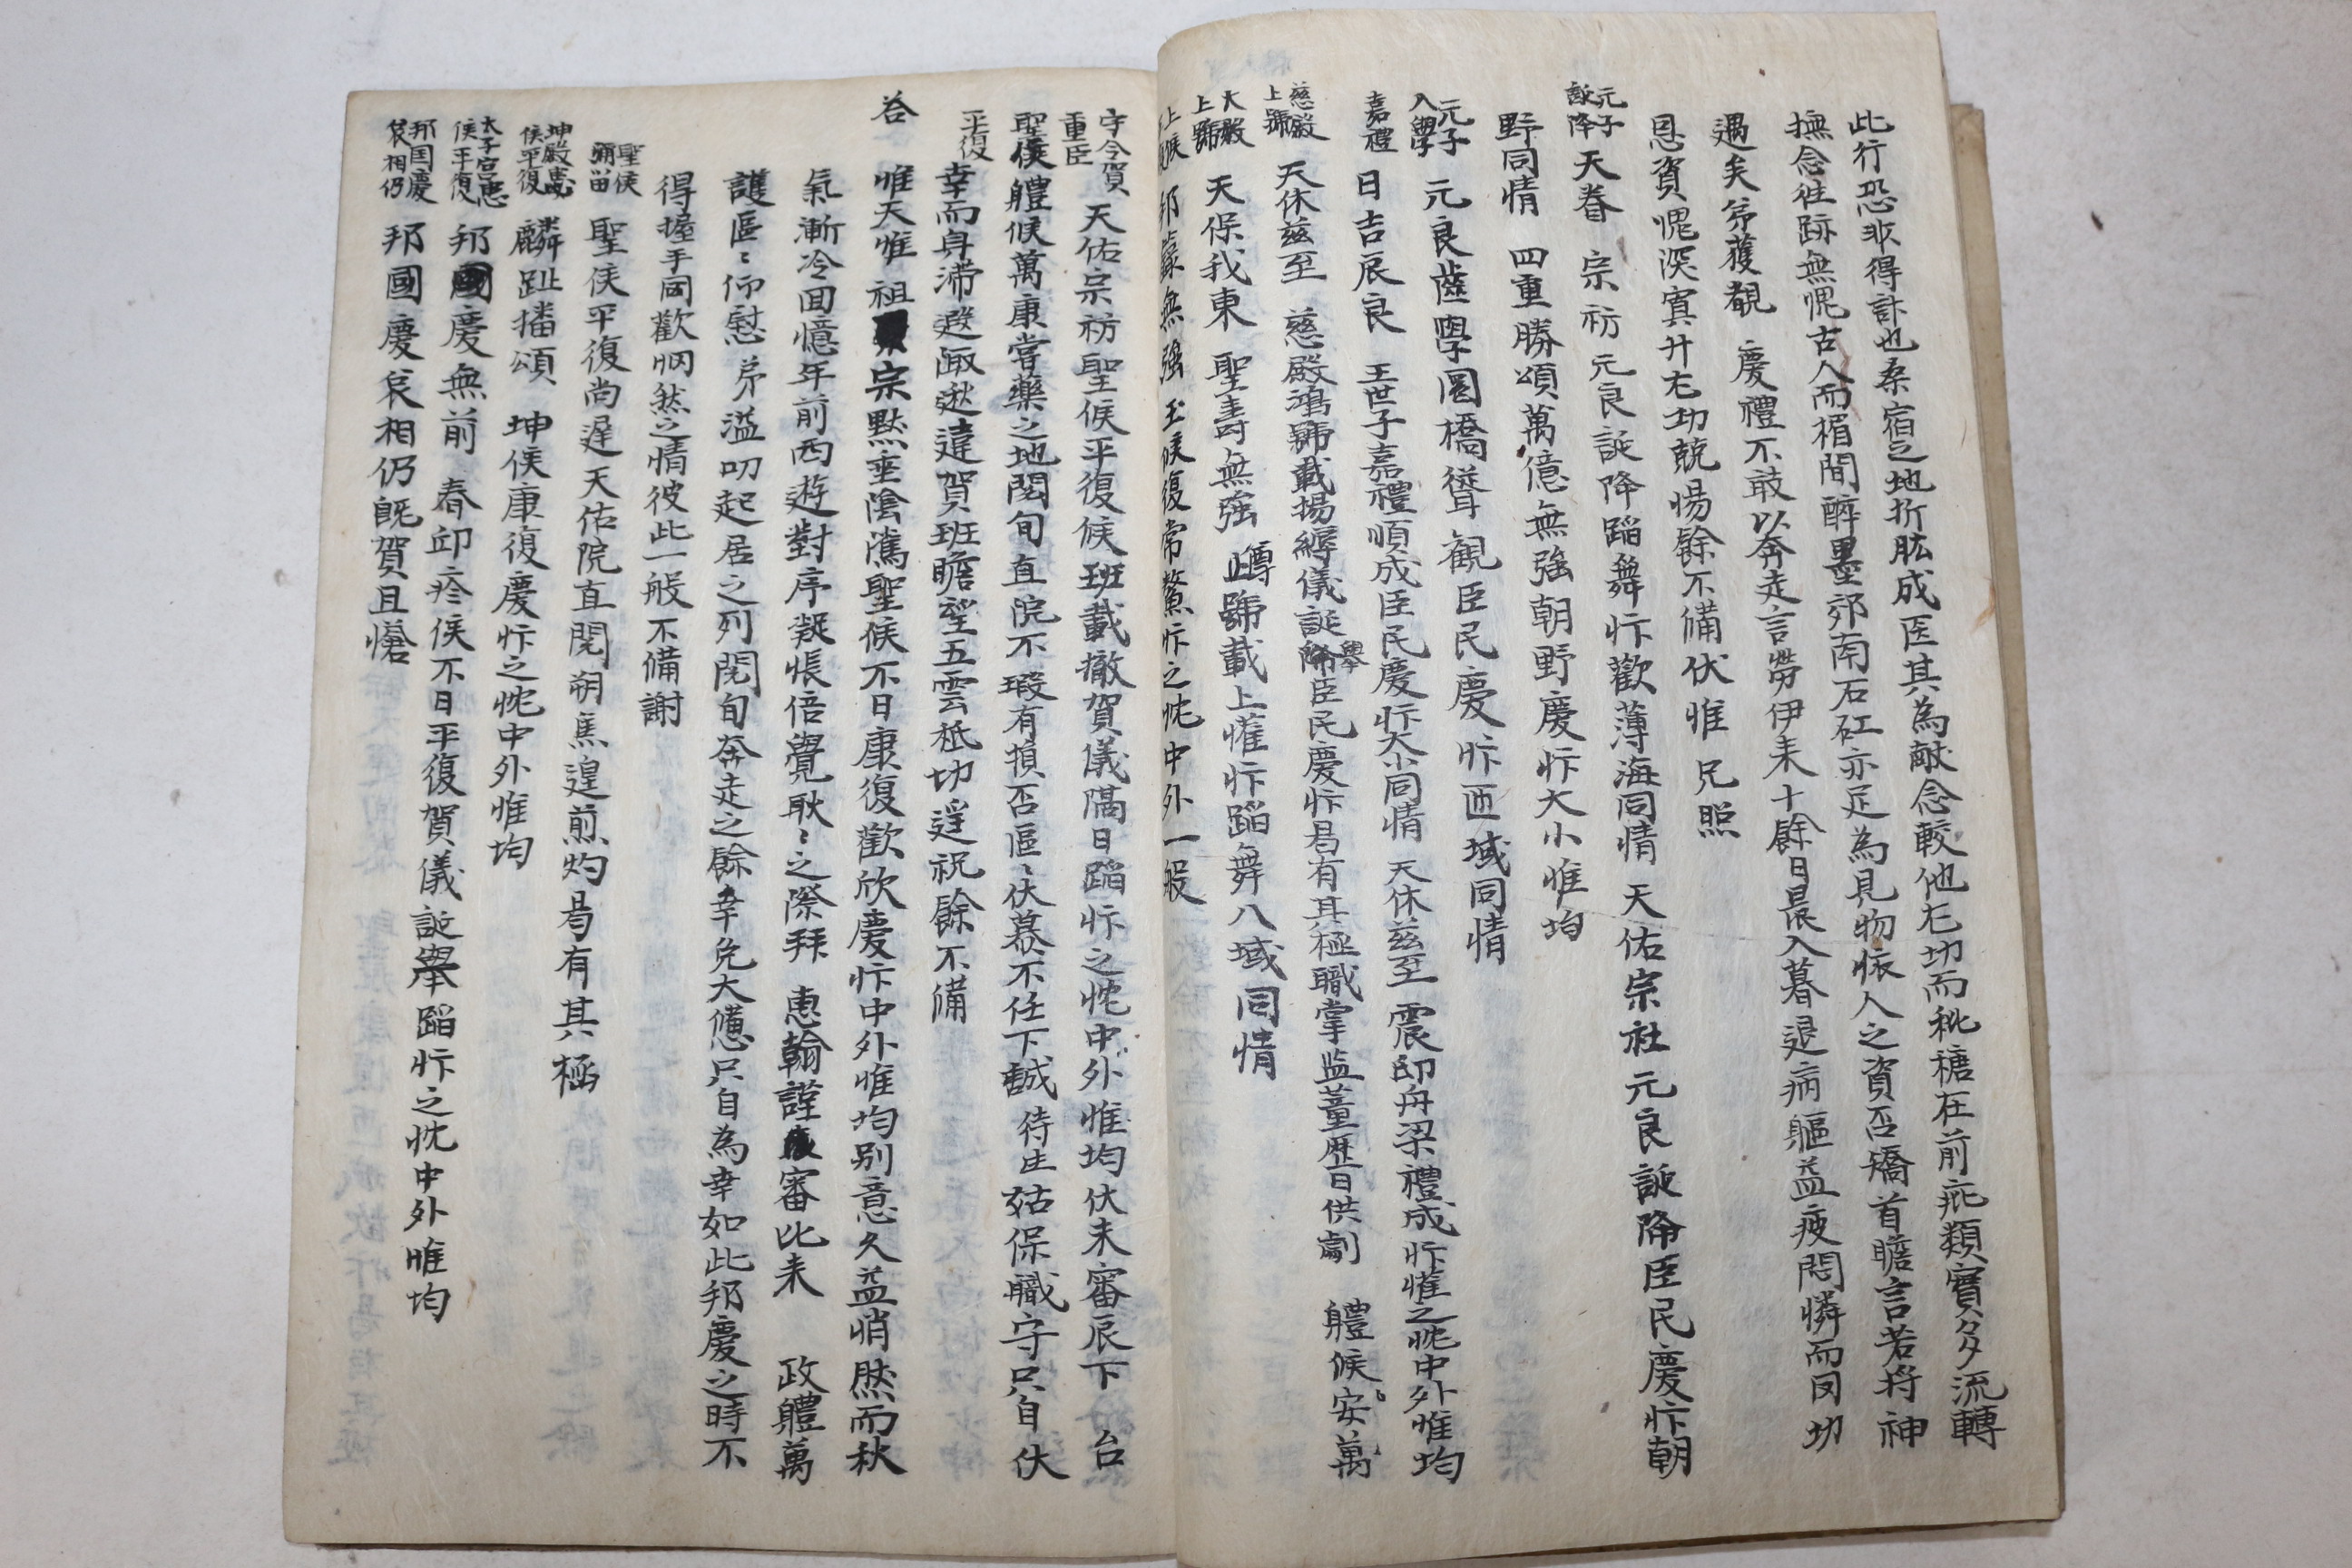 此行恐非得計也桑宿之地折肱成医其為獻念較他尤切而秕糠在前疵類實多流轉
撫念往跡無愧古人而楣間醉墨郊南石矼亦足為見物悵人之資否矯首瞻言若將神
遇矣弟獲覩 慶禮不敢以奔走言勞伊来十餘日晨入暮退病軀益疲悶憐而因切
恩資愧深寘升尤功兢惕餘不備伏惟 兄照
元子
誕降 天眷 宗祊 元良誕降蹈舞忭歡薄海同情 天佑宗社 元良誕降臣民慶忭朝
野同情 四重勝頌萬億無強朝野慶忭大小惟均
元子
入學 元良齒學圜橋聳觀臣民慶忭匝域同情
嘉禮 日吉辰良 王世子嘉禮順成臣民慶忭大小同情 天休玆至 震邸舟梁禮成忭懽之忱中外惟均
慈殿
上號 天休玆至 慈殿鴻號載揚縟儀誕擧臣民慶忭曷有其極職掌監董歷日供劇 體候安萬
大殿
上號 天保我東 聖壽無強 尊號載上懽忭蹈舞八域同情
上候 邦籙無強玉候復常鰲忭之忱中外一般
守令賀
重臣 天佑宗祊聖候平復候班載撤賀儀隔日蹈忭之忱中外惟均伏未審辰下 台
聖候 體候萬康嘗藥之地閱旬直院不瑕有損否區〻伏慕不任下誠 待生姑保職守只自伏
平復 幸而身滯遐陬逖違賀班瞻望五雲秪切遥祝餘不備
答 惟天惟 祖宗默垂隂隲聖候不日康復歡欣慶忭中外惟均别意久益悄然而秋
氣漸冷回憶年前西遊對序凝悵倍覺耿〻之際拜 惠翰謹審比来 政體萬
護區〻仰慰 弟溢叨起居之列閱旬奔走之餘幸免大憊只自為幸如此邦慶之時不
得握手同歡烱然之情彼此一般不備謝
聖候
彌留 聖侯平復尚遅天佑院直閱朔焦遑煎灼曷有其極
坤殿患
侯平復 麟趾播頌 坤侯康復慶忭之忱中外惟均
太子宮患
侯平復 邦國慶無前 春邸疹侯不日平復賀儀誕擧蹈忭之忱中外惟均
邦国慶
哀相仍 邦國慶哀相仍旣賀且愴